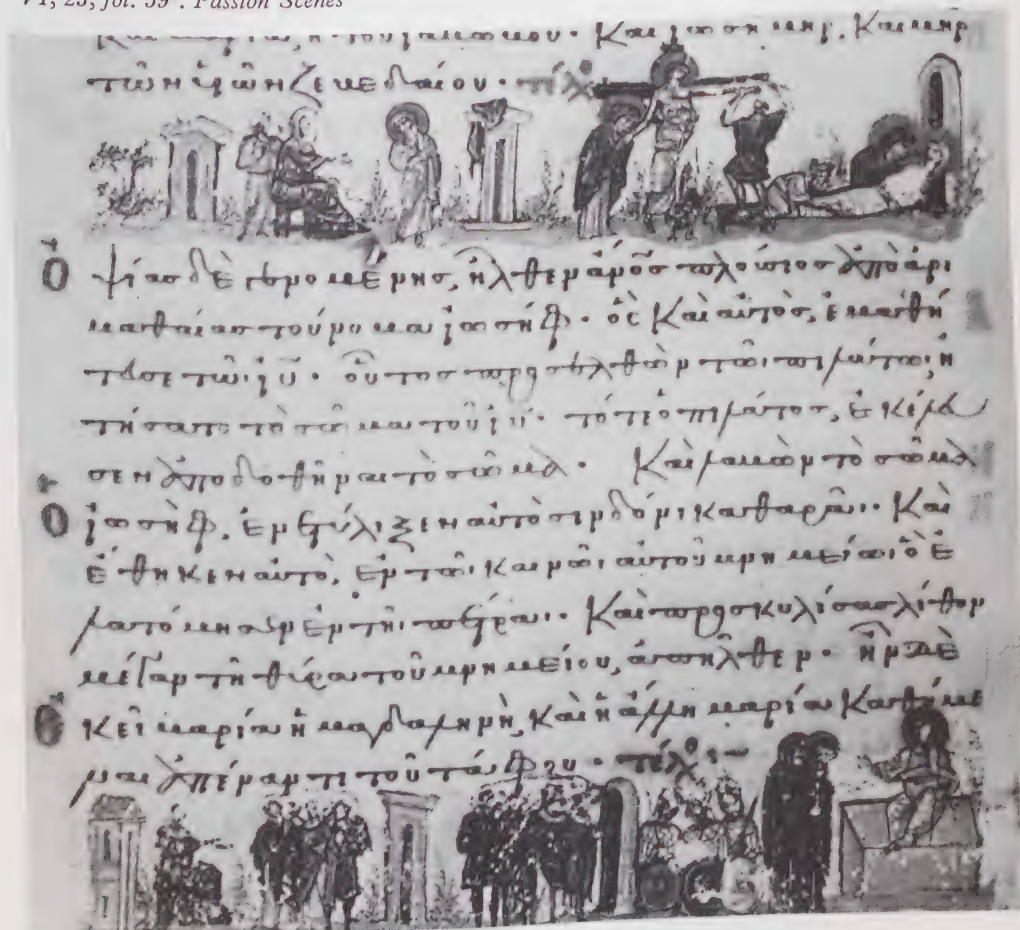 VI, 23, fol. 59ᵛ. Passion Scenes
Καὶ μαρία ἡ τοῦ ἰακώβου· Καὶ ἰωσῆ μηρ, Καὶ μηρ
τῶν ὑιῶν ζεβεδαίου· τελ
Ὀψίας δὲ γενομένης, ἦλθεν ἄνος πλούσιος ἀπὸ ἀρι
μαθαίας τούνομα ἰωσήφ· ὃς Καὶ αὐτὸς, ἐμαθή
τευσε τῶι ιυ· οὗτος προσελθὼν τῶι πιλάτωι, ἠ
τήσατο τὸ σῶμα τοῦ ιυ· τότε ὁ πιλάτος, ἐκέλευ
σεν ἀποδοθῆναι τὸ σῶμα· Καὶ λαβὼν τὸ σῶμα
ὁ ἰωσὴφ, ἐνετύλιξεν αὐτὸ σινδόνι καθαρᾶι· Καὶ
ἔθηκεν αὐτὸ, ἐν τῶι καινῶι αὐτοῦ μνημείωι ὃ ἐ
λατόμησεν ἐν τῆι πέτραι· Καὶ προσκυλίσας λίθον
μέγαν τῆ θύρα τοῦ μνημείου, ἀπῆλθεν· ἦν δὲ
ἐκεῖ μαρία ἡ μαγδαληνὴ, Καὶ ἡ ἄλλη μαρία Καθήμε
ναι ἀπέναντι τοῦ τάφου· τελ